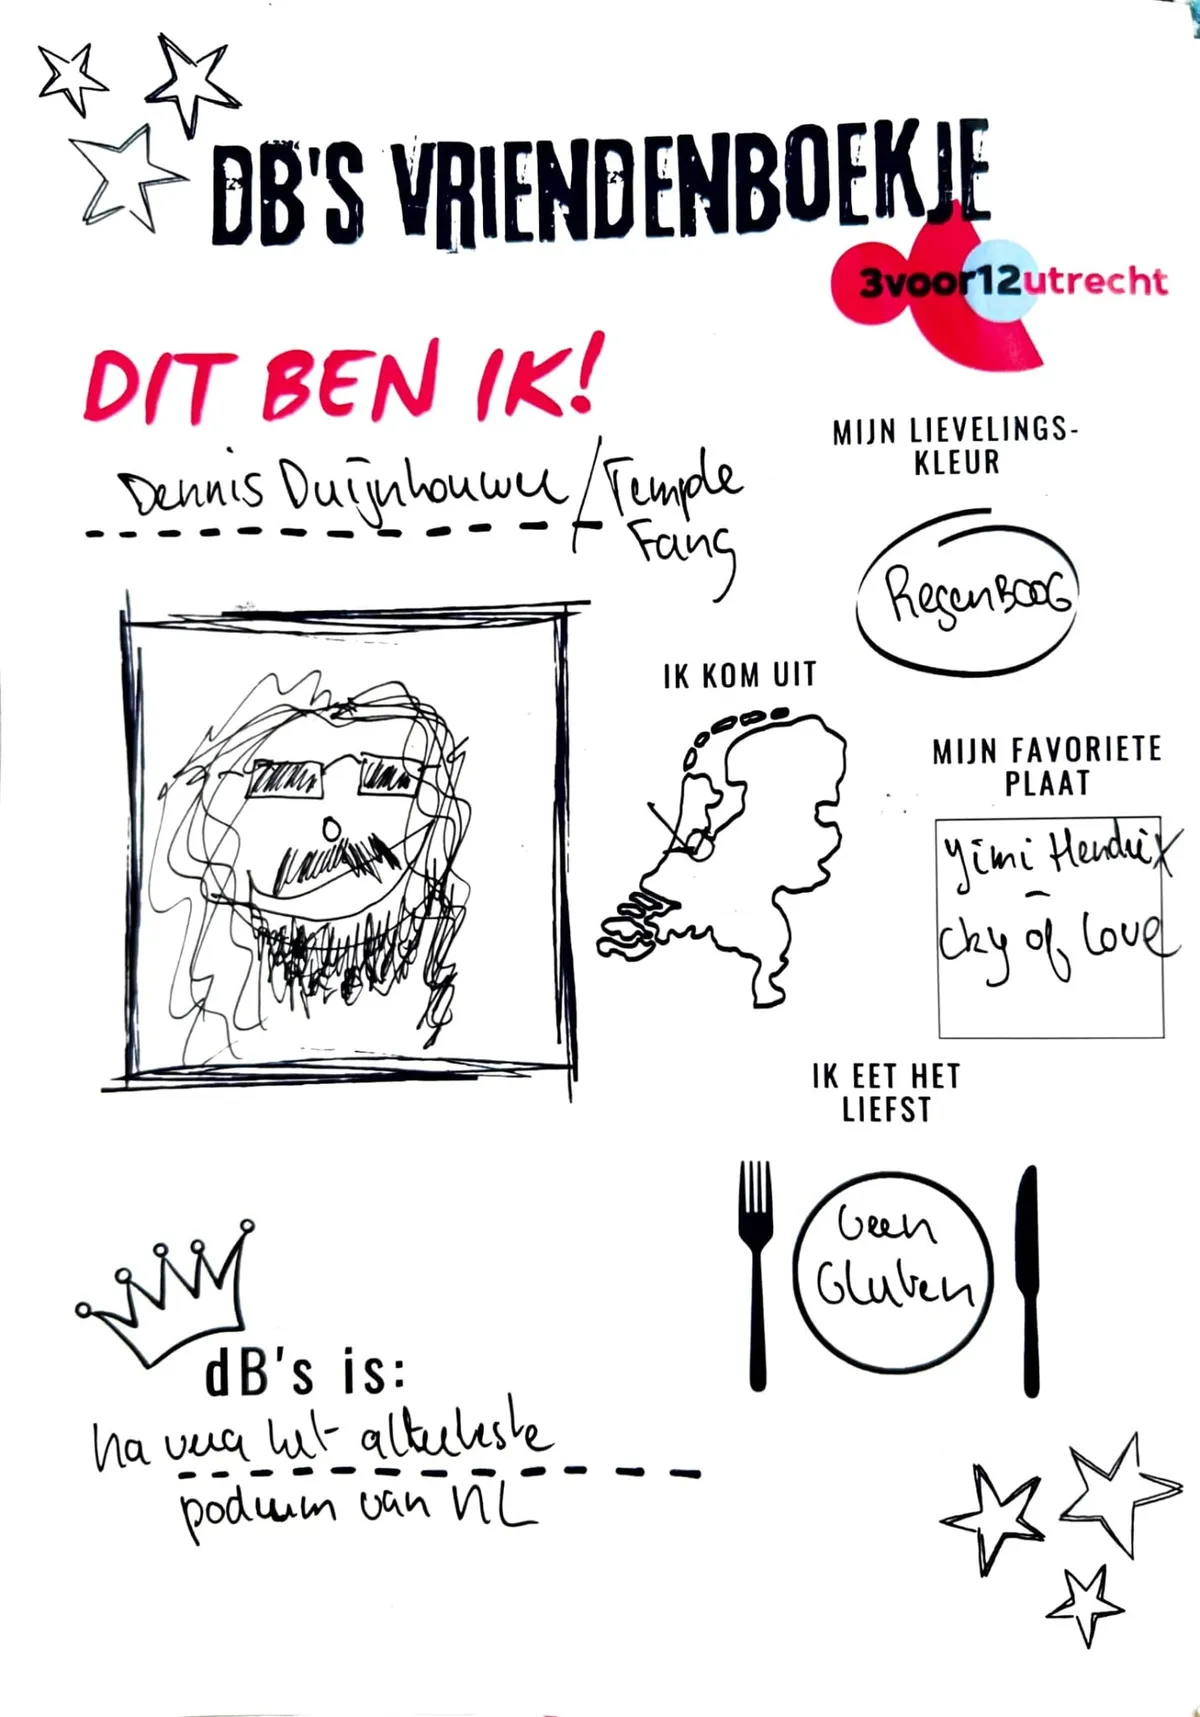 DB'S VRIENDENBOEKJE
3voor12utrecht
DIT BEN IK!
Dennis Duijnhouwer / Temple
Fang
MIJN LIEVELINGS-
KLEUR
RegenBOOG
IK KOM UIT
MIJN FAVORIETE
PLAAT
Yimi Hendrix
-
cry of love
IK EET HET
LIEFST
Geen
Gluten
dB's is:
na vera het allerleukste
podium van NL